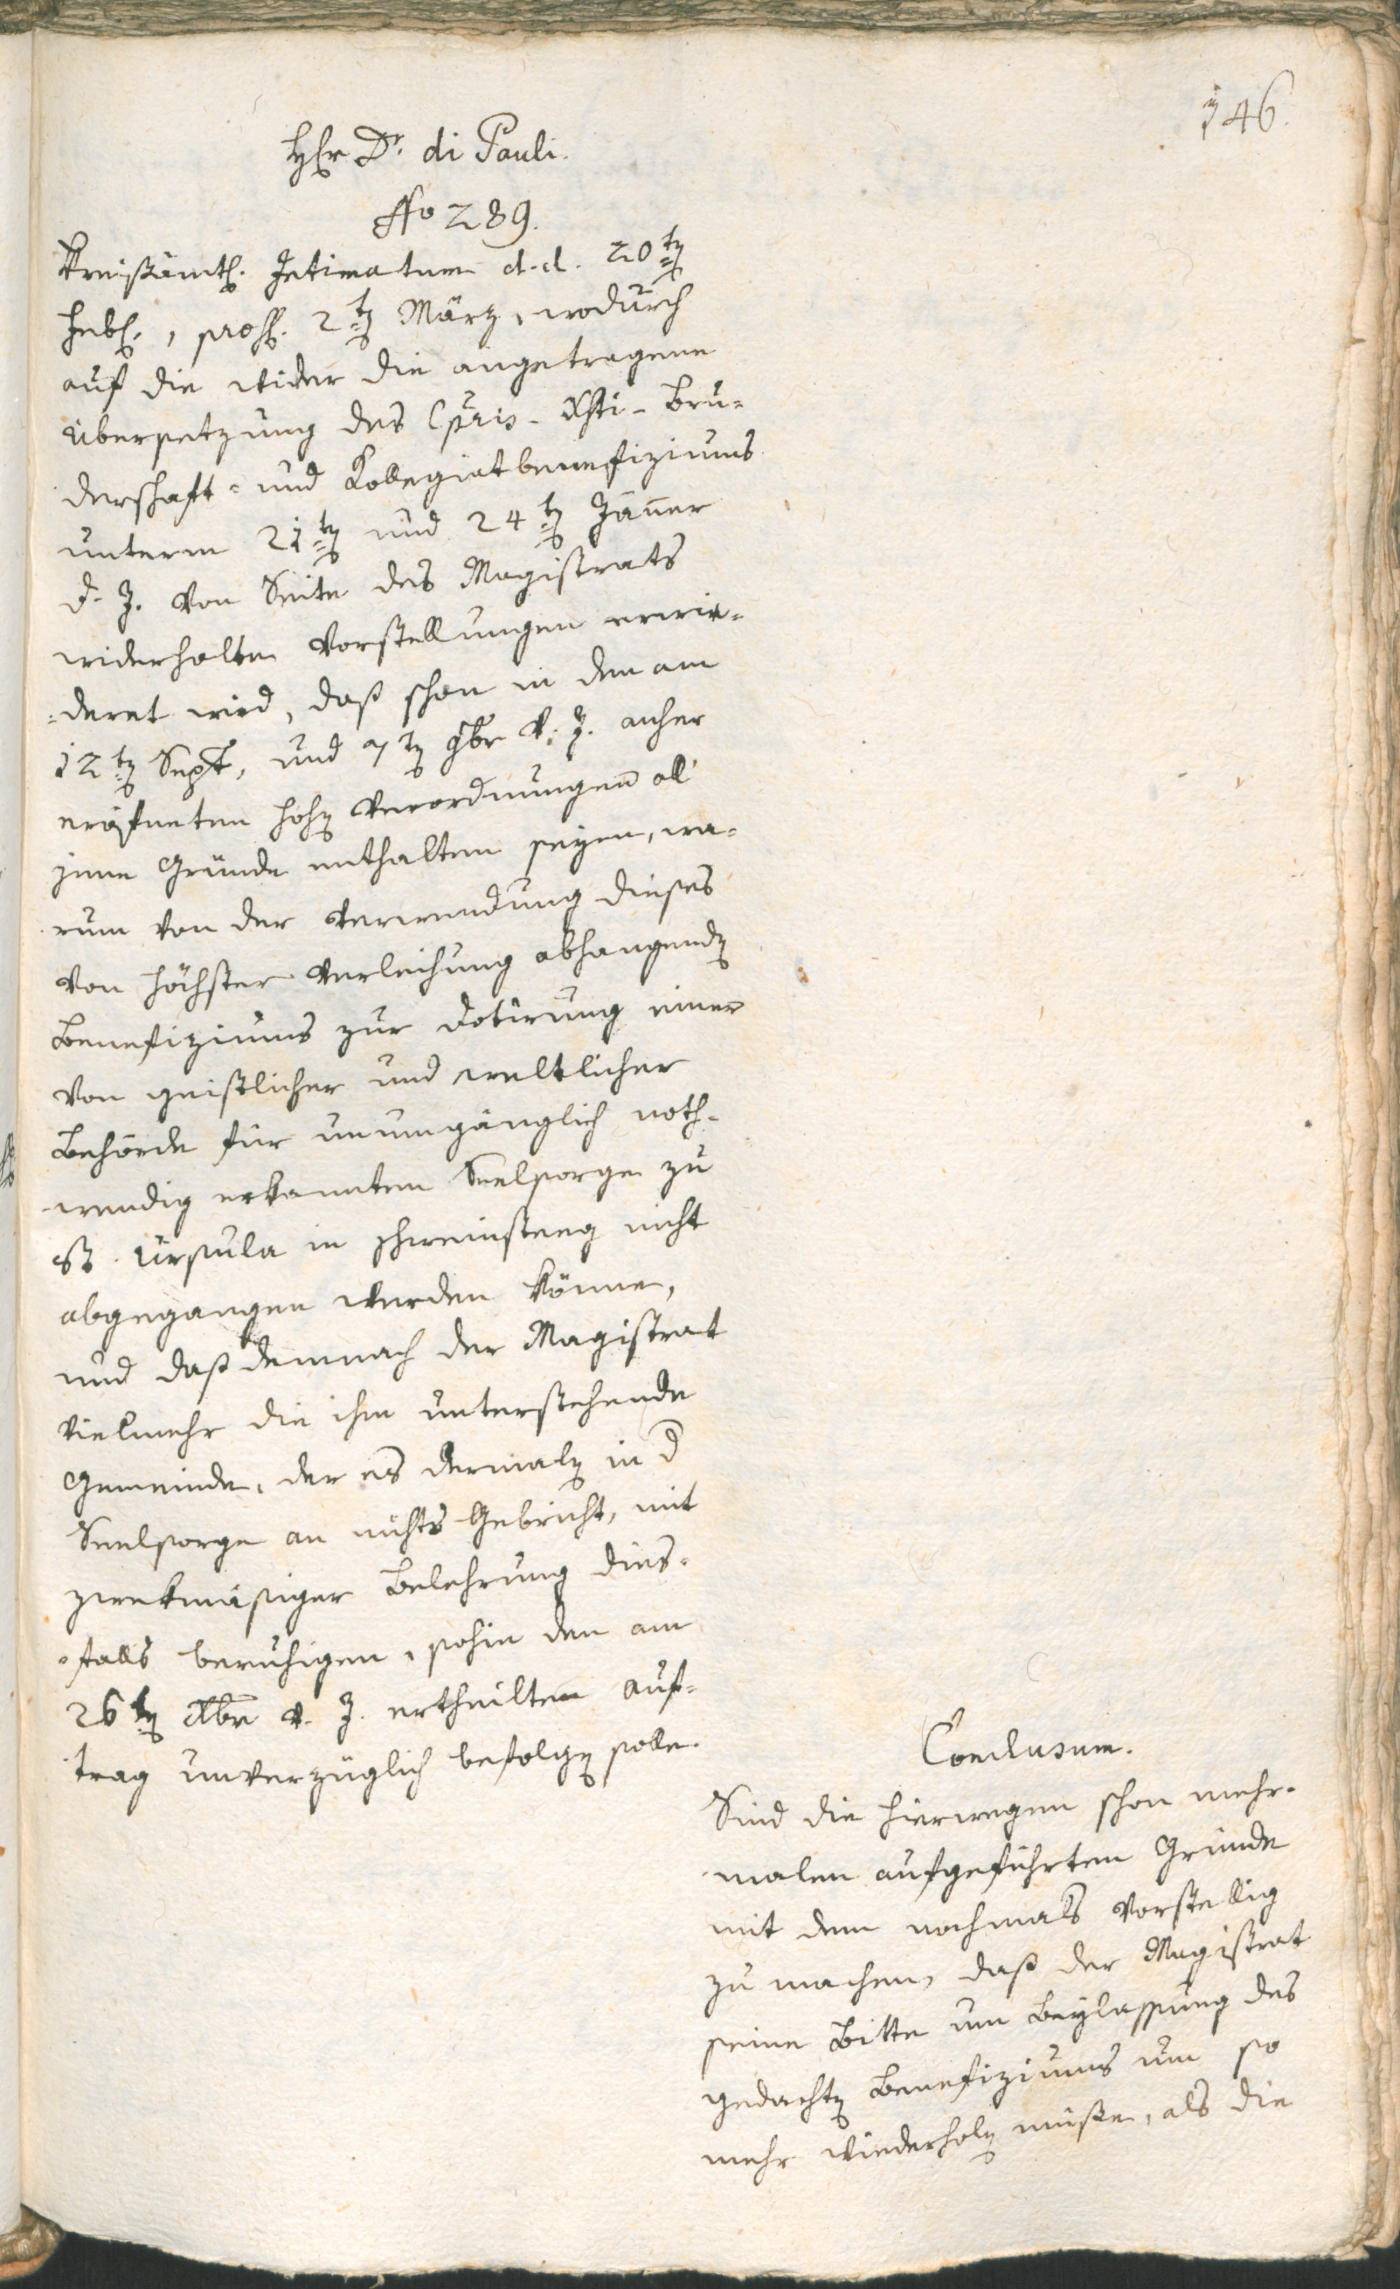 146.
Hr Dr. di Pauli.
No 289.
Kreißämtl. Intimatum d.d. 20ten
Hebl., pros. 2ten März, wodurch
auf die wider die angetragene
Übersetzung des Cpris-Xsti-Bru-
derschaft- und Kollegiatbenefiziums
unterm 21ten und 24ten Jäner
d. J. von Seite des Magistrats
widerholten Vorstellungen erwie-
=deret wird, daß schon in den am
12ten Sept, und 7ten 9br v. J. anher
eröfneten hohen Verordnungen all
jene Gründe enthalten seyen, wa=
rum von der Verwendung dieses
von höchster Verleihung abhangenden
Benefiziums zur Dotirung einer
von geistlicher und weltlicher
Behörde für unumgänglich noth-
wendig erkannten Seelsorge zu
St. Ursula in Schweinsteeg nicht
abgegangen werden könne,
und daß demnach der Magistrat
vielmehr die ihm unterstehende
Gemeinde, der es dermalen in d
Seelsorge an nichts Gebricht, mit
zwekmäsiger Belehrung dies-
falls beruhigen, sohin den am
26ten Xbr v. J. ertheilten Auf-
trag unverzüglich befolgen solle.
Conclusum.
Sind die hierwegen schon mehr-
malen aufgeführten Gründe
mit dem nochmals vorstellig
zu machen, daß der Magistrat
seine Bitte um Beylassung des
gedachten Benefiziums um so
mehr wiederholen müße, als die